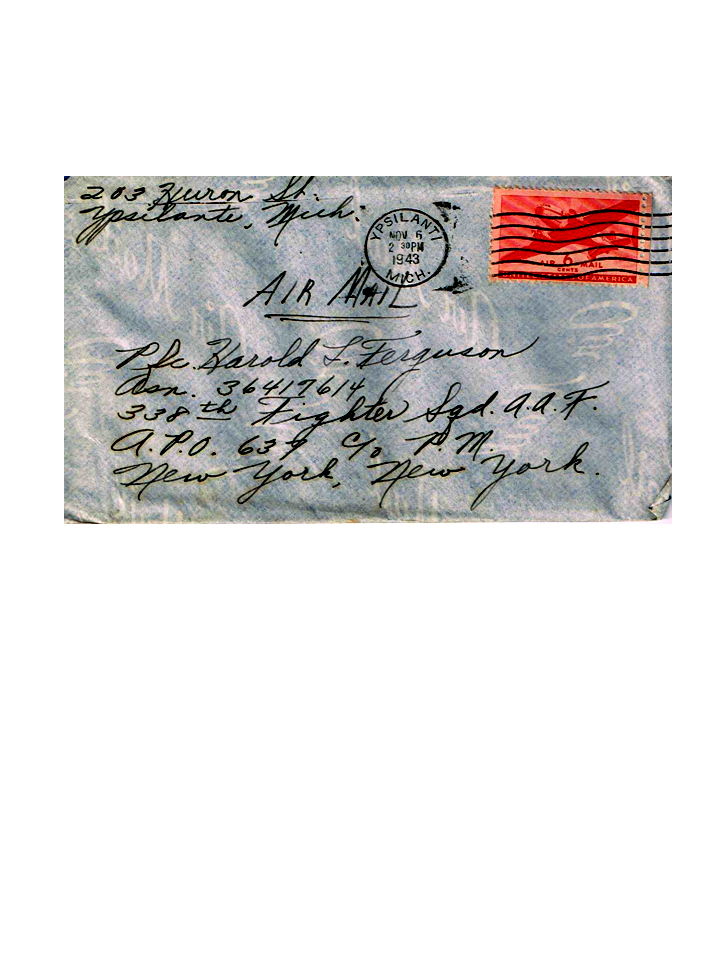 203 Huron St.
Ypsilanti, Mich.
YPSILANTI
NOV 6
2 30PM
1943
MICH.
AIR 6 MAIL
CENTS
UNITED STATES OF AMERICA
AIR MAIL
Pfc. Harold L. Ferguson
Asn. 36417614
338th Fighter Sqd. A.A.F.
A.P.O. 637 c/o P.M.
New York, New York.